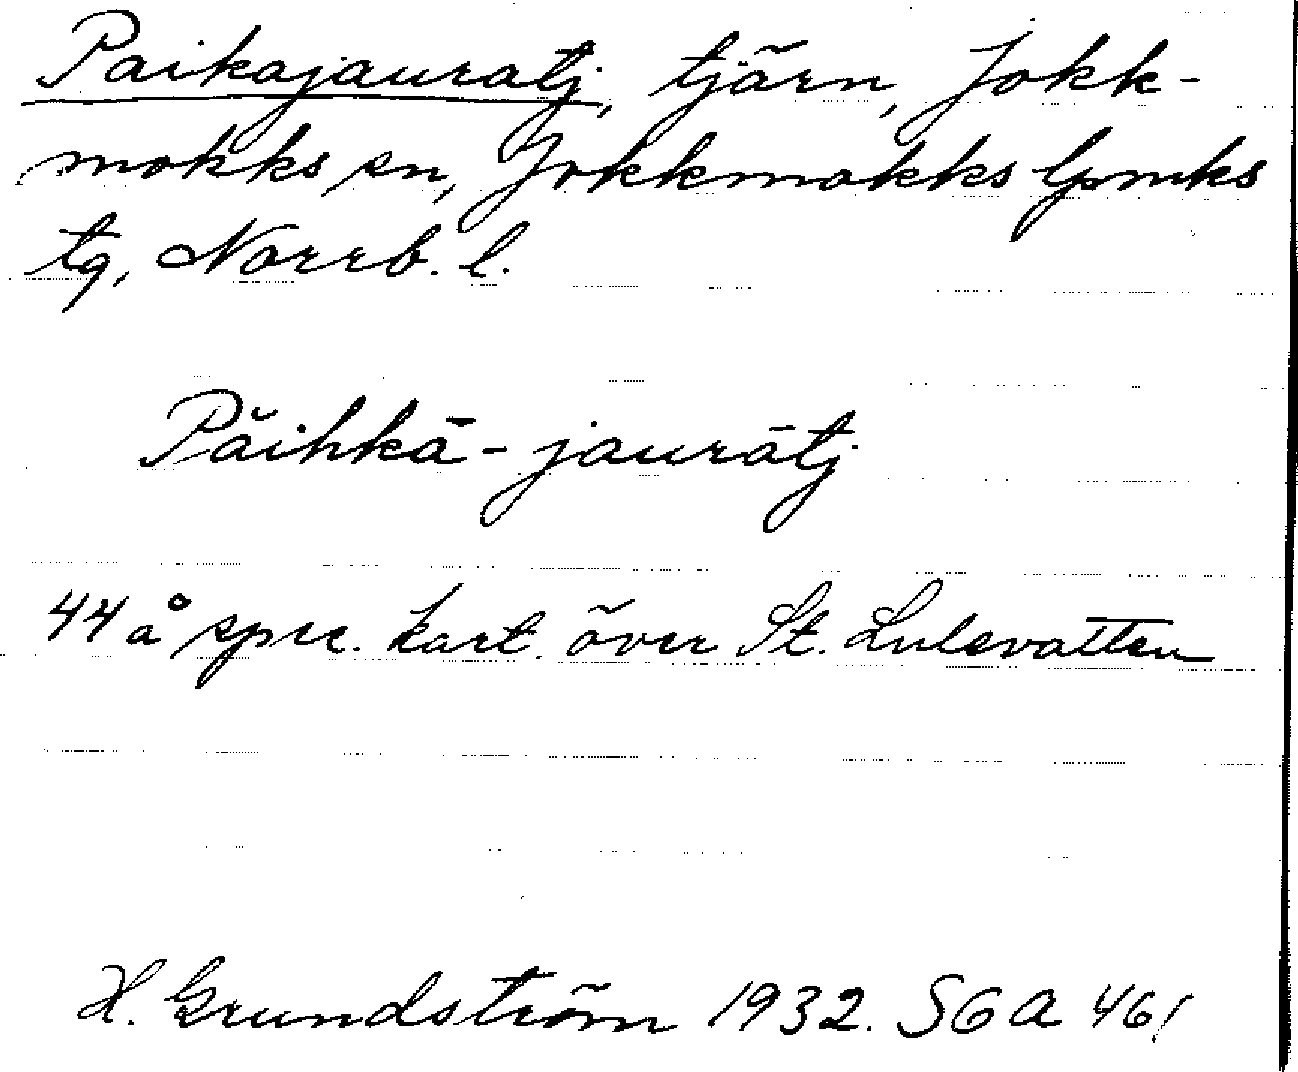 Paikajauratj, tjärn, Jokk-
mokks sn, Jokkmokks lpmks
tg, Norrb. l.
Păihkā-jaurātj
44 å spec. kart. över St. Lulevatten
H. Grundström 1932. SGA 461